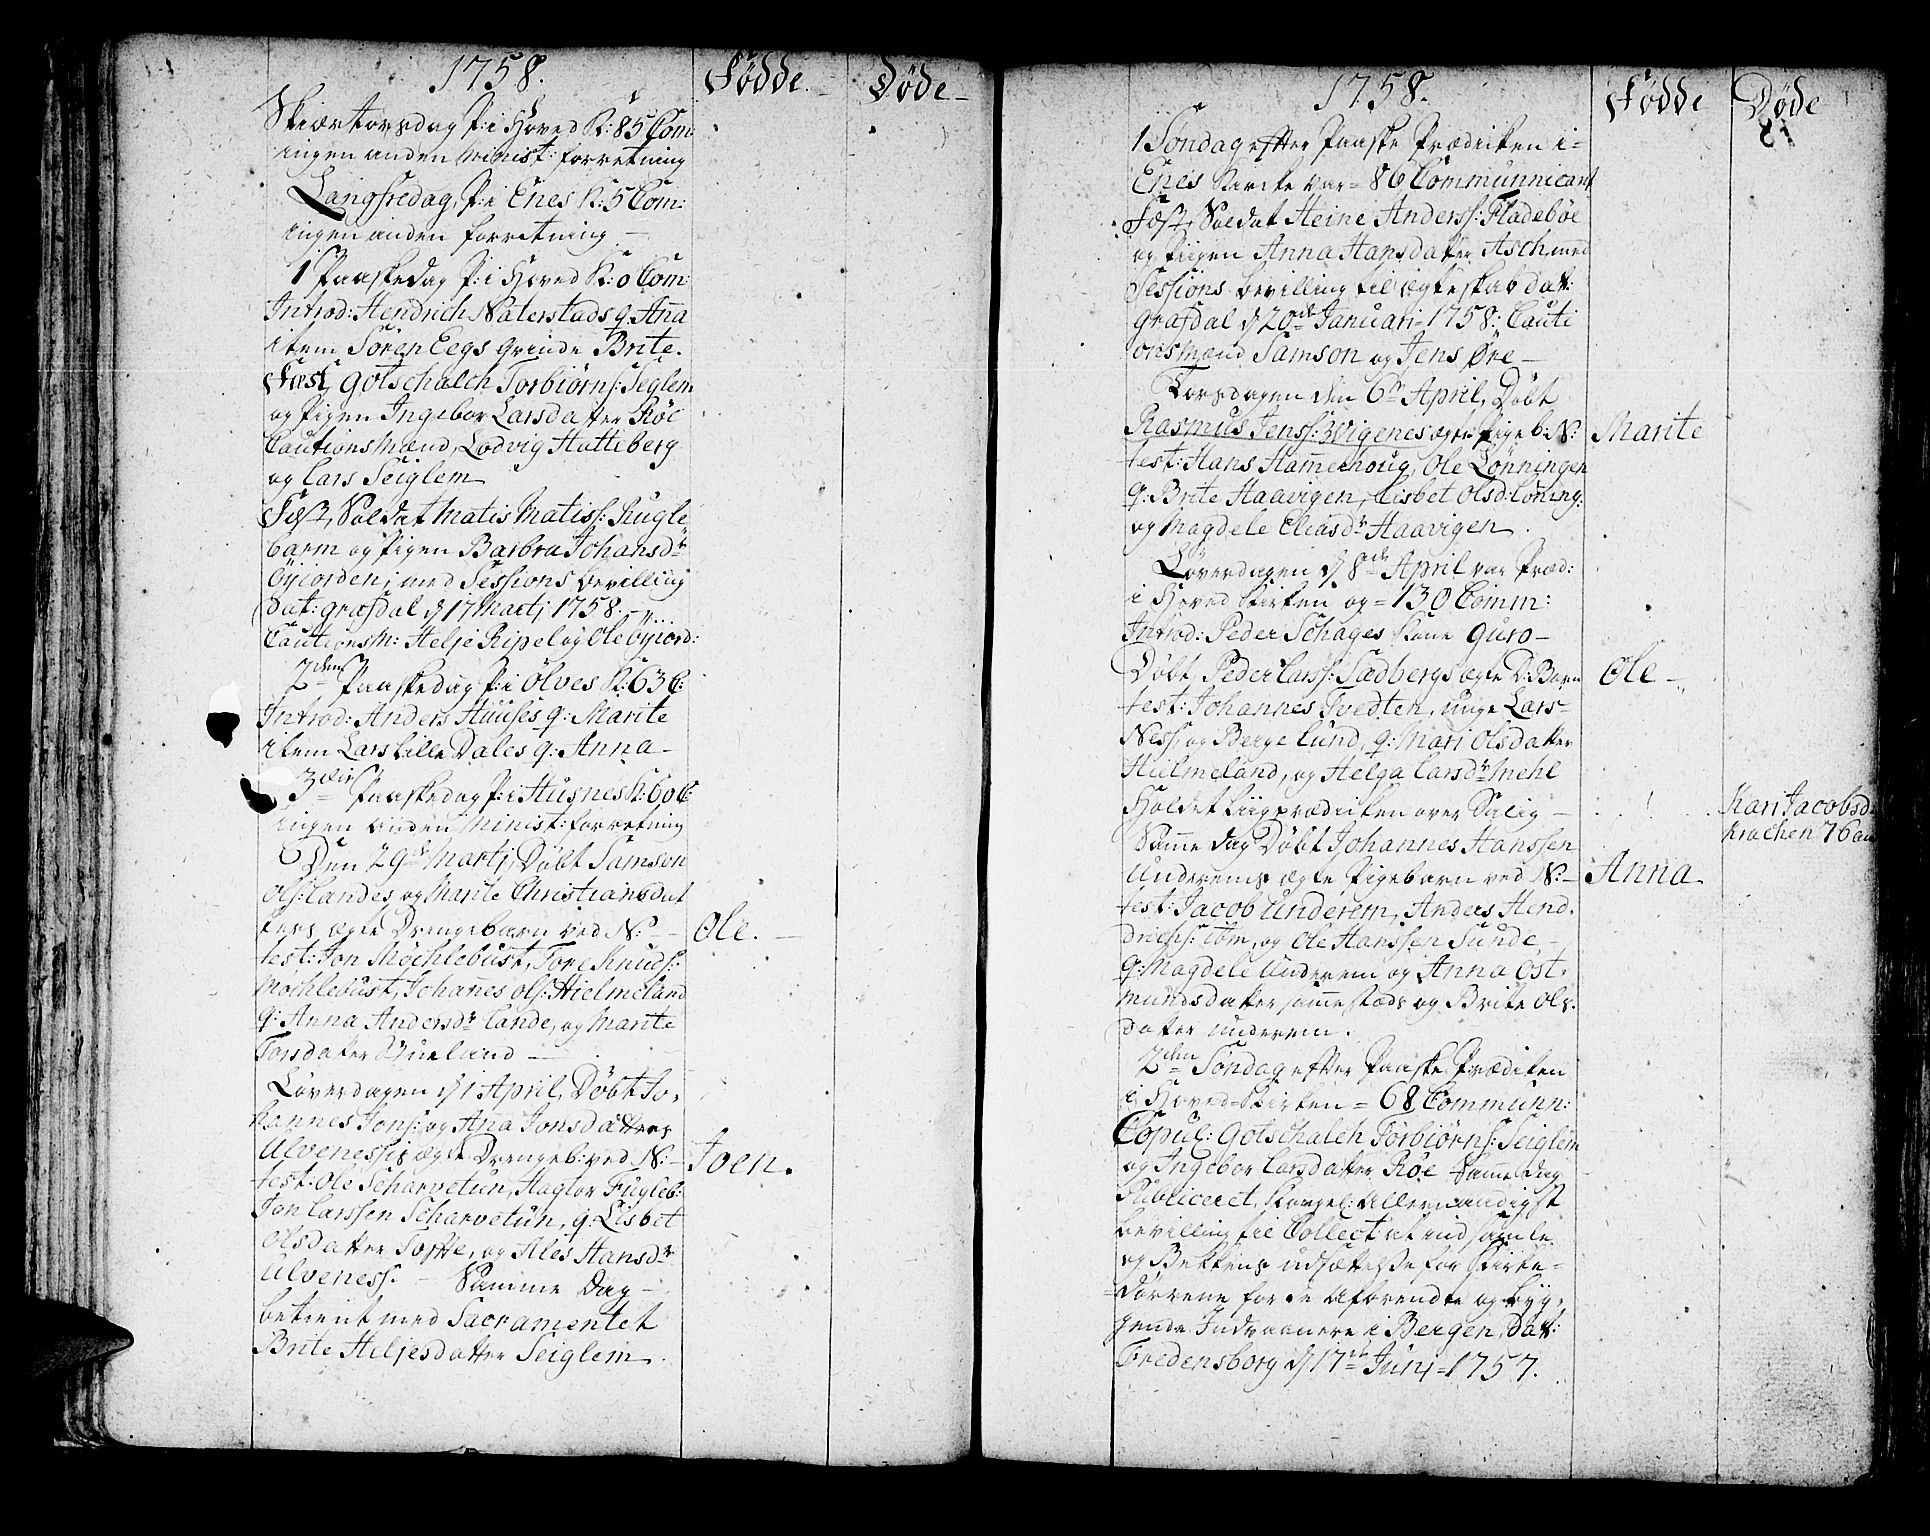 1758.
Fødde.
Døde
Skiærtorsdag P: i Hoved K: 85 Com:
ingen anden Minist: forretning
Langfredag, P: i Enes K: 5 Com:
ingen anden forretning
1 Paaskedag P: i Hoved K: 0 Com:
Introd: Hendrich Naterstads q: Ana
item Søren Eegs qvinde Brite.
Fæst, Gotschalch Torbiørns: Seglem
og Pigen Ingebor Larsdatter Røe
Cautionsmænd, Lodvig Hatteberg
og Lars Seiglem
Fæst, Soldat Matis Matiss: Fugle
barm og Pigen Barbra Johansdr
Gyiorden; med Sessions bevilling
dat: Grafdal d 17 Martj 1758.
Cautionsm: Helje Ripel og Ole Gyiord:
2den Paaskedag P: i Ølves K: 63 C:
Introd: Anders Huuses q: Marite
item Lars Lille Dales q: Anna
3die Paaskedag P: i Husnes K: 60 C:
ingen anden Minist: forretning
Den 29de Martj, Døbt Samson
Ols: Landes og Marite Christiansdat
ters ægte Drengebarn ved N:
Ole.
test: Jon Møchlebust, Tore Knuds:
Møchlebust, Johanes Ols: Hielmeland
q: Anna Andersdr Lande, og Marite
Torsdatter
Løverdagen d 1 April, Døbt Jo-
hannes Jons: og Ana Jonsdatters
Ulveness: ægte Drengeb: ved N:
Joen.
test: Ole Scharvetun, Hagtor Fugleb:
Jon Larssen Scharvetun, q: Lisbet
Olsdatter Tofte, og Ales Hansdr
Ulveness. Samme Dag
betient med Sacramentet
Brite Heljesdatter Seiglem.
1758.
Fødde
Døde
81
1 Søndag efter Paaske Prædiken i
Enes Kirke var 86 Communicant
Fæst, Soldat Heine Anderss: Fladebøe
og Pigen Anna Hansdatter Asch, med
Sessions bevilling til ægteskab dat:
Grafdal d 20de Januari 1758: Cauti
onsmænd Samson og Jens Øre
Torsdagen den 6te April, Døbt
Rasmus Jenss: Vigenes ægte Pigeb: N:
Marite
test: Hans Hamerhoug, Ole Lønningen
q: Brite Haavigen, Lisbet Olsd: Løning:
og Magdele Eliasdr Haavigen.
Løverdagen d 8de April var Præd:
i Hoved Kirken og 130 Comm:
Introd: Peder Schages Kone Guro
Døbt, Peder Larss: Sadbergs ægte D: Barn
Ole
test: Johannes Tvedten, unge Lars
Ness, og Berge Lund, q: Mari Olsdatter
Hielmeland, og Helga Larsdr Mehl
Holdet Liigprædiken over Salig
Kari Jacobsd
Krachen 76 aar
Samme dag Døbt Johannes Hanssen
Underems ægte Pigebarn ved N:
Anna
test: Jacob Underem, Anders Hend-
drichs: Tøm, og Ole Hanssen Sunde
q: Magdele Underem og Anna Ost-
mundsdatter sammestæds og Brite Ols-
datter Underem.
2den Søndag efter Paaske Prædiken
i Hoved-Kirken 68 Communn:
Copul: Gotschalch Torbiørns: Seiglem
og Ingebor Larsdatter Røe Samme Dag
Publiceret, Kongel: allernaadigst
bevilling til Collect at indsamle
og Bekkens udsættelse for Kirke-
dørrene for de afbrendte og byg-
gende Indvaanere i Bergen, dat:
Fredensborg d 17de Junj 1757.